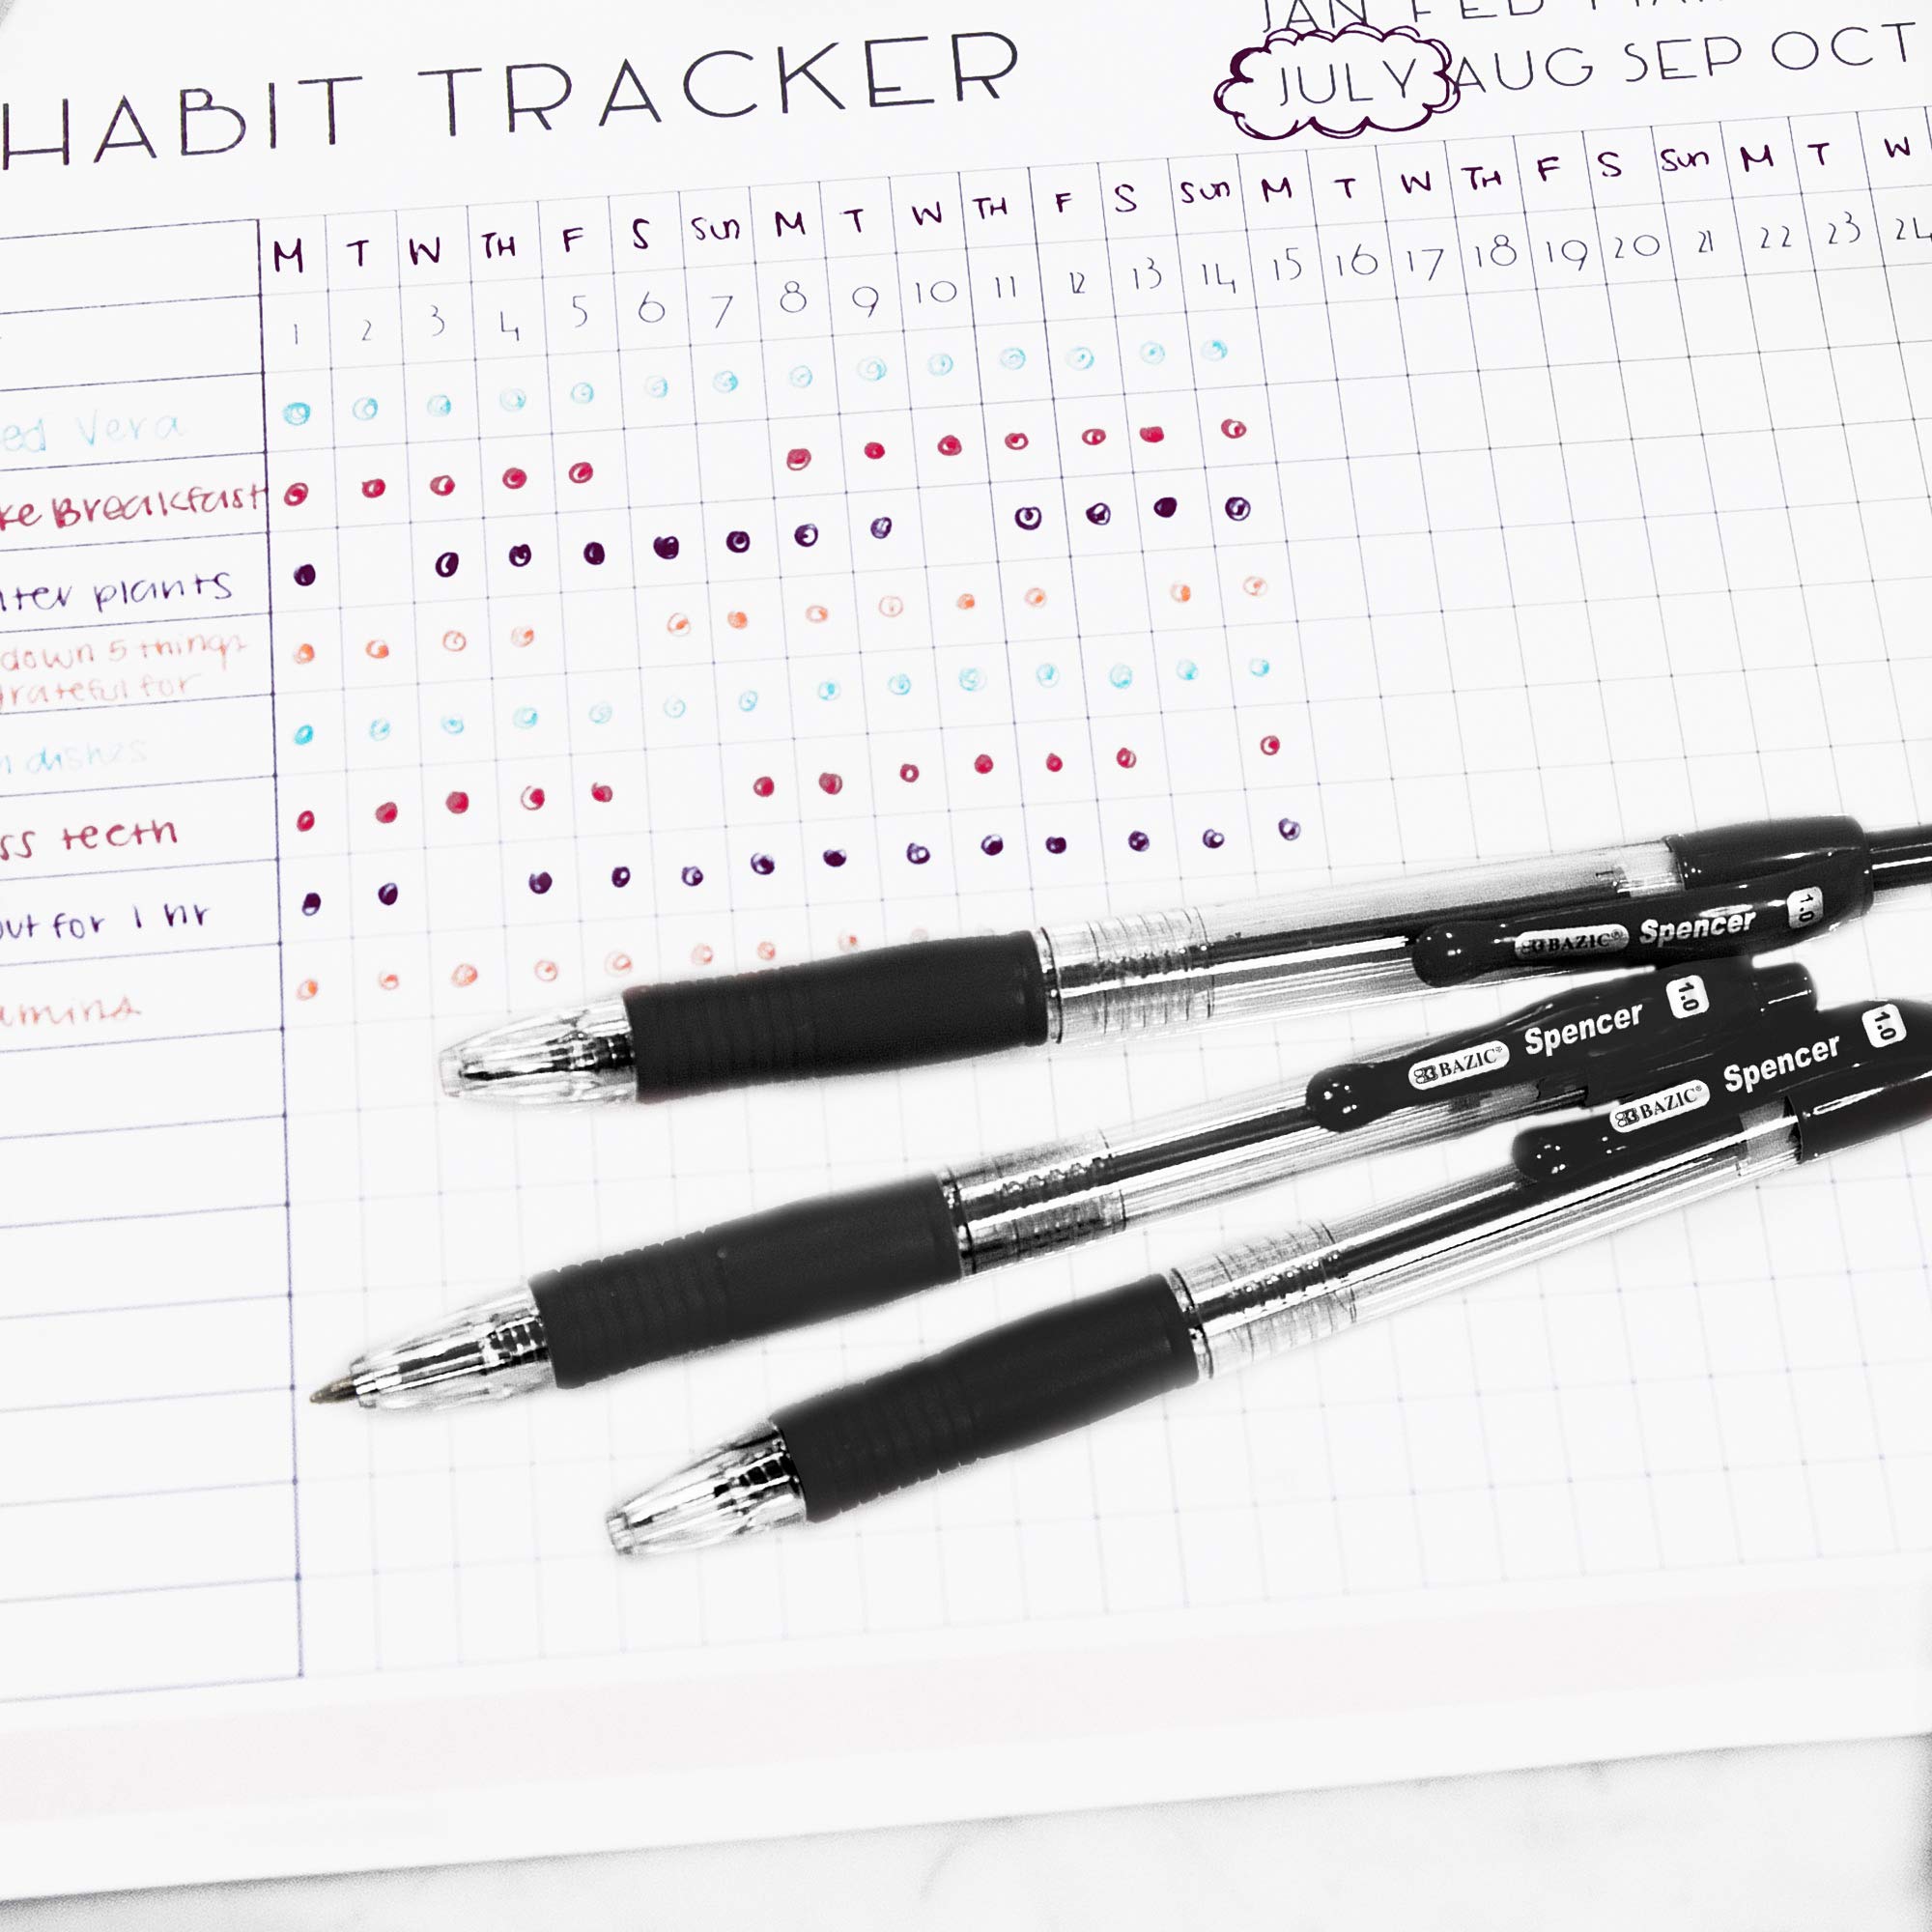 HABIT TRACKER
JAN FEB
JULY AUG SEP OCT
M T W TH F S Sun M T W TH F S Sun M T W TH F S Sun M T W
1 2 3 4 5 6 7 8 9 10 11 12 13 14 15 16 17 18 19 20 21 22 23 24
ed Vera
ke Breakfast
ter plants
down 5 things
grateful for
dishes
ss teeth
out for 1 hr
amins
BAZIC® Spencer 1.0
BAZIC® Spencer 1.0
BAZIC® Spencer 1.0